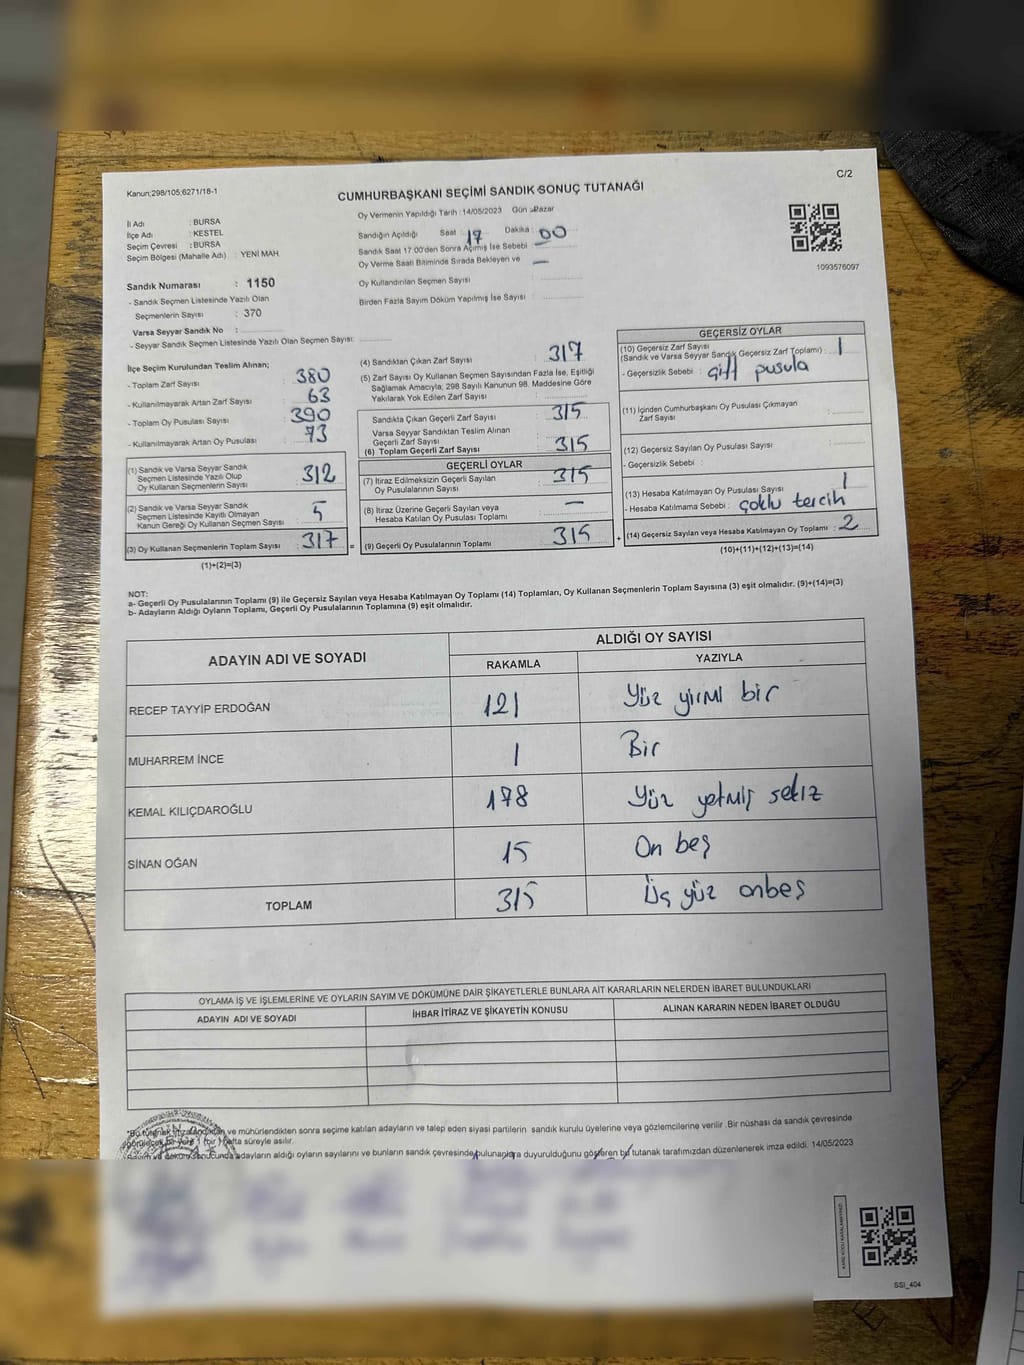 Kanun;298/105;6271/18-1
C/2
CUMHURBAŞKANI SEÇİMİ SANDIK SONUÇ TUTANAĞI
İl Adı : BURSA
İlçe Adı : KESTEL
Seçim Çevresi : BURSA
Seçim Bölgesi (Mahalle Adı) : YENİ MAH.
Sandık Numarası : 1150
- Sandık Seçmen Listesinde Yazılı Olan
Seçmenlerin Sayısı : 370
Varsa Seyyar Sandık No :
- Seyyar Sandık Seçmen Listesinde Yazılı Olan Seçmen Sayısı:
Oy Vermenin Yapıldığı Tarih :14/05/2023 Gün :Pazar
Sandığın Açıldığı Saat 17 Dakika : 00
Sandık Saat 17:00'den Sonra Açmış İse Sebebi :
Oy Verme Saati Bitiminde Sırada Bekleyen ve —
Oy Kullandırılan Seçmen Sayısı :
Birden Fazla Sayım Döküm Yapılmış İse Sayısı :
1093576097
İlçe Seçim Kurulundan Teslim Alınan;
- Toplam Zarf Sayısı : 380
- Kullanılmayarak Artan Zarf Sayısı : 63
- Toplam Oy Pusulası Sayısı : 390
- Kullanılmayarak Artan Oy Pusulası : 73
(1) Sandık ve Varsa Seyyar Sandık
Seçmen Listesinde Yazılı Olup
Oy Kullanan Seçmenlerin Sayısı : 312
(2) Sandık ve Varsa Seyyar Sandık
Seçmen Listesinde Kayıtlı Olmayan
Kanun Gereği Oy Kullanan Seçmen Sayısı : 5
(3) Oy Kullanan Seçmenlerin Toplam Sayısı : 317 =
(1)+(2)=(3)
(4) Sandıktan Çıkan Zarf Sayısı : 317
(5) Zarf Sayısı Oy Kullanan Seçmen Sayısından Fazla İse, Eşitliği
Sağlamak Amacıyla; 298 Sayılı Kanunun 98. Maddesine Göre
Yakılarak Yok Edilen Zarf Sayısı :
Sandıkta Çıkan Geçerli Zarf Sayısı : 315
Varsa Seyyar Sandıktan Teslim Alınan
Geçerli Zarf Sayısı :
(6) Toplam Geçerli Zarf Sayısı : 315
GEÇERLİ OYLAR
(7) İtiraz Edilmeksizin Geçerli Sayılan
Oy Pusulalarının Sayısı : 315
(8) İtiraz Üzerine Geçerli Sayılan veya
Hesaba Katılan Oy Pusulası Toplamı : —
(9) Geçerli Oy Pusulalarının Toplamı : 315 +
GEÇERSİZ OYLAR
(10) Geçersiz Zarf Sayısı
(Sandık ve Varsa Seyyar Sandık Geçersiz Zarf Toplamı) : 1
- Geçersizlik Sebebi : Çift pusula
(11) İçinden Cumhurbaşkanı Oy Pusulası Çıkmayan
Zarf Sayısı :
(12) Geçersiz Sayılan Oy Pusulası Sayısı :
- Geçersizlik Sebebi :
(13) Hesaba Katılmayan Oy Pusulası Sayısı : 1
- Hesaba Katılmama Sebebi : çoklu tercih
(14) Geçersiz Sayılan veya Hesaba Katılmayan Oy Toplamı : 2
(10)+(11)+(12)+(13)=(14)
NOT:
a- Geçerli Oy Pusulalarının Toplamı (9) ile Geçersiz Sayılan veya Hesaba Katılmayan Oy Toplamı (14) Toplamları, Oy Kullanan Seçmenlerin Toplam Sayısına (3) eşit olmalıdır. (9)+(14)=(3)
b- Adayların Aldığı Oyların Toplamı, Geçerli Oy Pusulalarının Toplamına (9) eşit olmalıdır.
ADAYIN ADI VE SOYADI
ALDIĞI OY SAYISI
RAKAMLA YAZIYLA
RECEP TAYYİP ERDOĞAN 121 Yüz yirmi bir
MUHARREM İNCE 1 Bir
KEMAL KILIÇDAROĞLU 178 Yüz yetmiş sekiz
SİNAN OĞAN 15 On beş
TOPLAM 315 Üç yüz onbeş
OYLAMA İŞ VE İŞLEMLERİNE VE OYLARIN SAYIM VE DÖKÜMÜNE DAİR ŞİKAYETLERLE BUNLARA AİT KARARLARIN NELERDEN İBARET BULUNDUKLARI
ADAYIN ADI VE SOYADI İHBAR İTİRAZ VE ŞİKAYETİN KONUSU ALINAN KARARIN NEDEN İBARET OLDUĞU
ve mühürlendikten sonra seçime katılan adayların ve talep eden siyasi partilerin sandık kurulu üyelerine veya gözlemcilerine verilir .Bir nüshası da sandık çevresinde
bir yere 1 (bir) hafta süreyle asılır.
sonucunda adayların aldığı oyların sayılarını ve bunların sandık çevresinde bulunanlara duyurulduğunu gösteren bu tutanak tarafımızdan düzenlenerek imza edildi. 14/05/2023
SSI_404